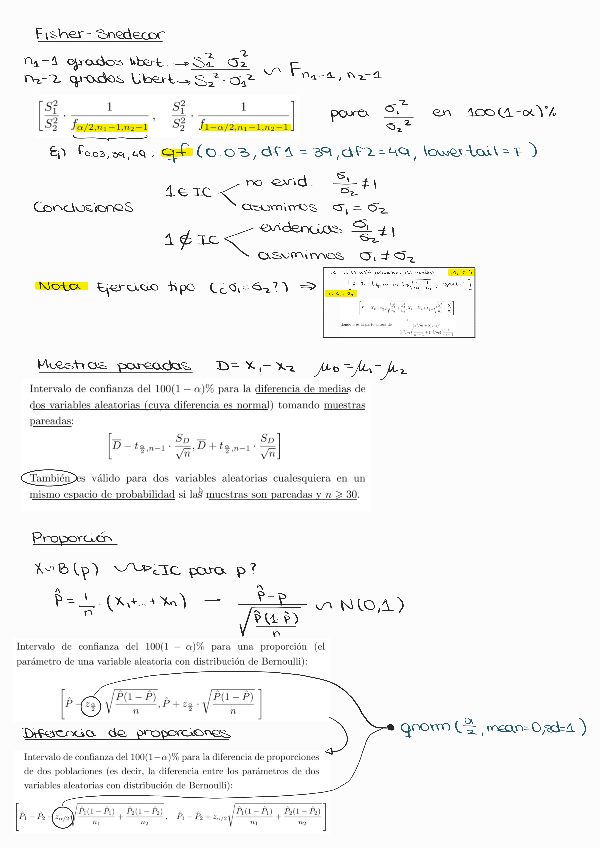 Fisher-Snedecor
n₁-1 grados libert. → S₁² σ₂²
n₂-2 grados libert → S₂² · σ₁² ∽ F n₁-1, n₂-1
[ S₁²/S₂² · 1/f_{α/2,n₁−1,n₂−1} , S₁²/S₂² · 1/f_{1−α/2,n₁−1,n₂−1} ] para σ₁²/σ₂² en 100(1-α)%
Ej) f₀.₀₃,₃₉,₄₉ : qf (0.03, df1 = 39, df2=49, lower tail = F)
1 ∈ IC no evid. σ₁/σ₂ ≠ 1
asumimos σ₁ = σ₂
Conclusiones
1 ∉ IC evidencias σ₁/σ₂ ≠ 1
asumimos σ₁ ≠ σ₂
Nota Ejercicio tipo (¿σ₁=σ₂?) ⇒
Muestras pareadas D = X₁ - X₂ μ_D = μ₁ - μ₂
Intervalo de confianza del 100(1 − α)% para la diferencia de medias de
dos variables aleatorias (cuya diferencia es normal) tomando muestras
pareadas:
[ D̄ − t_{α/2,n−1} · S_D/√n , D̄ + t_{α/2,n−1} · S_D/√n ]
También es válido para dos variables aleatorias cualesquiera en un
mismo espacio de probabilidad si las muestras son pareadas y n ⩾ 30.
Proporción
X∽B(p) ¿IC para p?
P̂ = 1/n · (X₁+...+Xn) → (P̂ - p)/√(P̂(1-P̂)/n) ∽ N(0,1)
Intervalo de confianza del 100(1 − α)% para una proporción (el
parámetro de una variable aleatoria con distribución de Bernoulli):
[ P̂ − z_{α/2} · √(P̂(1 − P̂)/n) , P̂ + z_{α/2} · √(P̂(1 − P̂)/n) ]
qnorm(α/2, mean=0, sd=1)
Diferencia de proporciones
Intervalo de confianza del 100(1−α)% para la diferencia de proporciones
de dos poblaciones (es decir, la diferencia entre los parámetros de dos
variables aleatorias con distribución de Bernoulli):
[ P̂₁ − P̂₂ − z_{α/2} √(P̂₁(1 − P̂₁)/n₁ + P̂₂(1 − P̂₂)/n₂) , P̂₁ − P̂₂ + z_{α/2} √(P̂₁(1 − P̂₁)/n₁ + P̂₂(1 − P̂₂)/n₂) ]